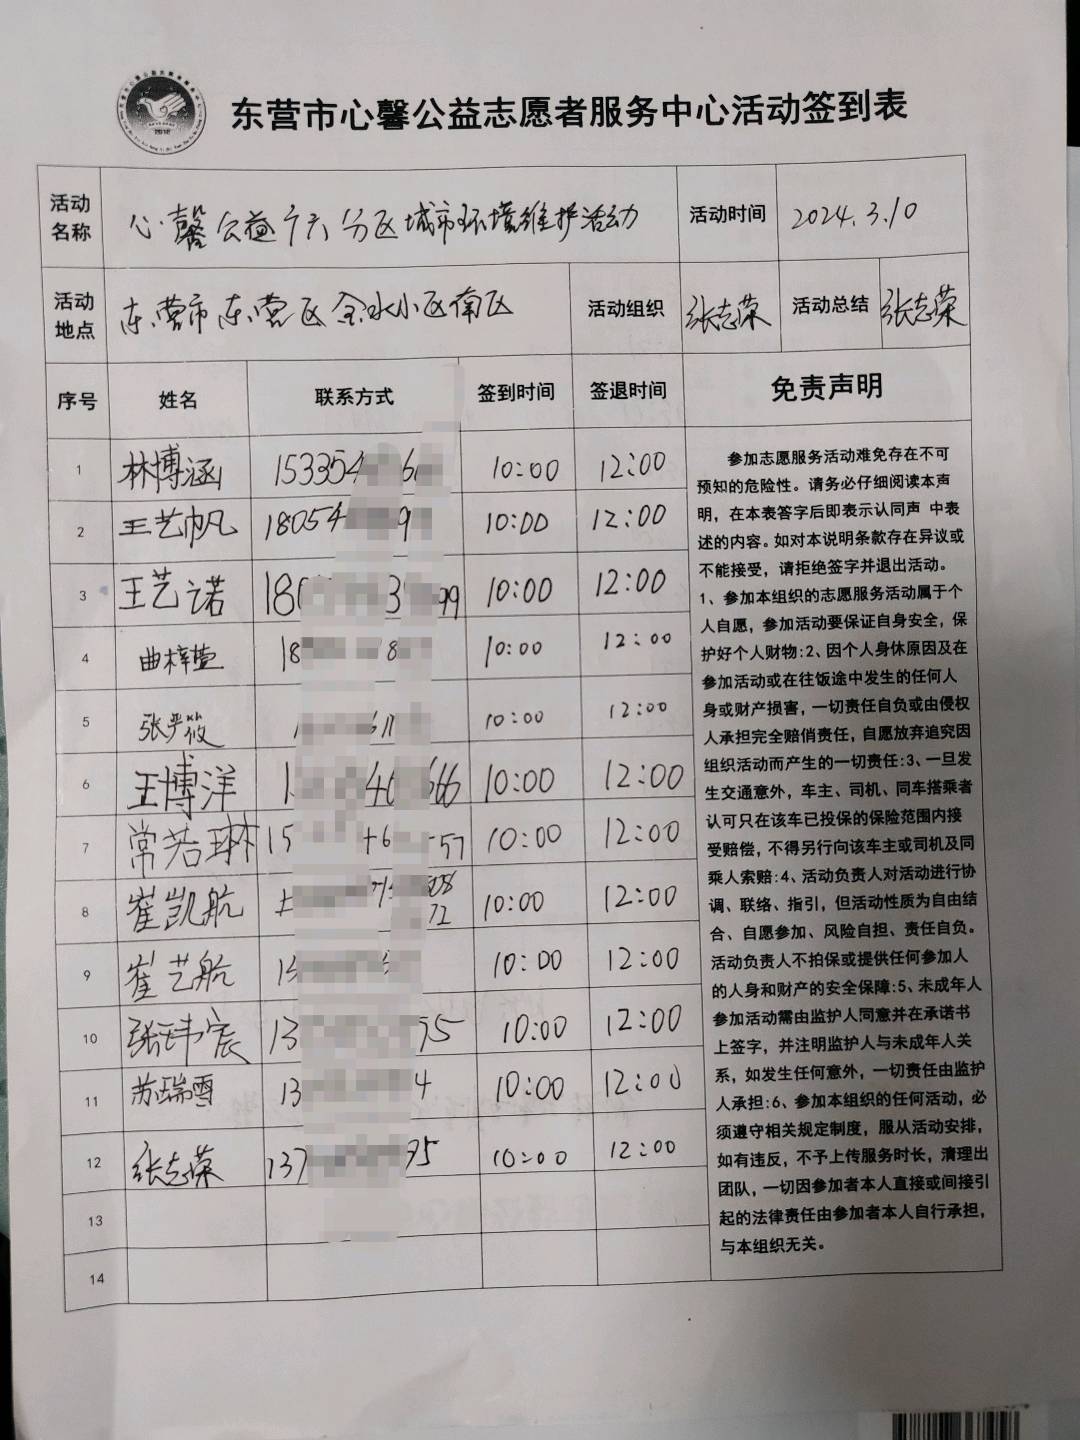 东营市心馨公益志愿者服务中心活动签到表
活动名称 心馨公益十六分区城市环境维护活动 活动时间 2024.3.10
活动地点 东营市东营区金水小区南区 活动组织 张志荣 活动总结 张志荣
序号 姓名 联系方式 签到时间 签退时间 免责声明
1 林博涵 153354 6 10:00 12:00
2 王艺帆 18054 9 10:00 12:00
3 王艺诺 180 3 99 10:00 12:00
4 曲梓萱 18 8 10:00 12:00
5 张严筱 1 611 10:00 12:00
6 王博洋 1 40 666 10:00 12:00
7 常若琳 15 +6 57 10:00 12:00
8 崔凯航 72 10:00 12:00
9 崔艺航 10:00 12:00
10 张玮宸 13 75 10:00 12:00
11 苏瑞雪 13 4 10:00 12:00
12 张志荣 137 95 10:00 12:00
13
14
参加志愿服务活动难免存在不可
预知的危险性。请务必仔细阅读本声
明，在本表答字后即表示认同声 中表
述的内容。如对本说明条款存在异议或
不能接受，请拒绝签字并退出活动。
1、参加本组织的志愿服务活动属于个
人自愿，参加活动要保证自身安全，保
护好个人财物:2、因个人身休原因及在
参加活动或在往饭途中发生的任何人
身或财产损害，一切责任自负或由侵权
人承担完全赔俏责任，自愿放弃追究因
组织活动而产生的一切责任:3、一旦发
生交通意外，车主、司机、同车搭乘者
认可只在该车已投保的保险范围内接
受赔偿，不得另行向该车主或司机及同
乘人索赔:4、活动负责人对活动进行协
调、联络、指引，但活动性质为自由结
合、自愿参加、风险自担、责任自负。
活动负责人不拍保或提供任何参加人
的人身和财产的安全保障:5、未成年人
参加活动需由监护人同意并在承诺书
上签字，并注明监护人与未成年人关
系，如发生任何意外，一切责任由监护
人承担:6、参加本组织的任何活动，必
须遵守相关规定制度，服从活动安排，
如有违反，不予上传服务时长，清理出
团队，一切因参加者本人直接或间接引
起的法律责任由参加者本人自行承担，
与本组织无关。